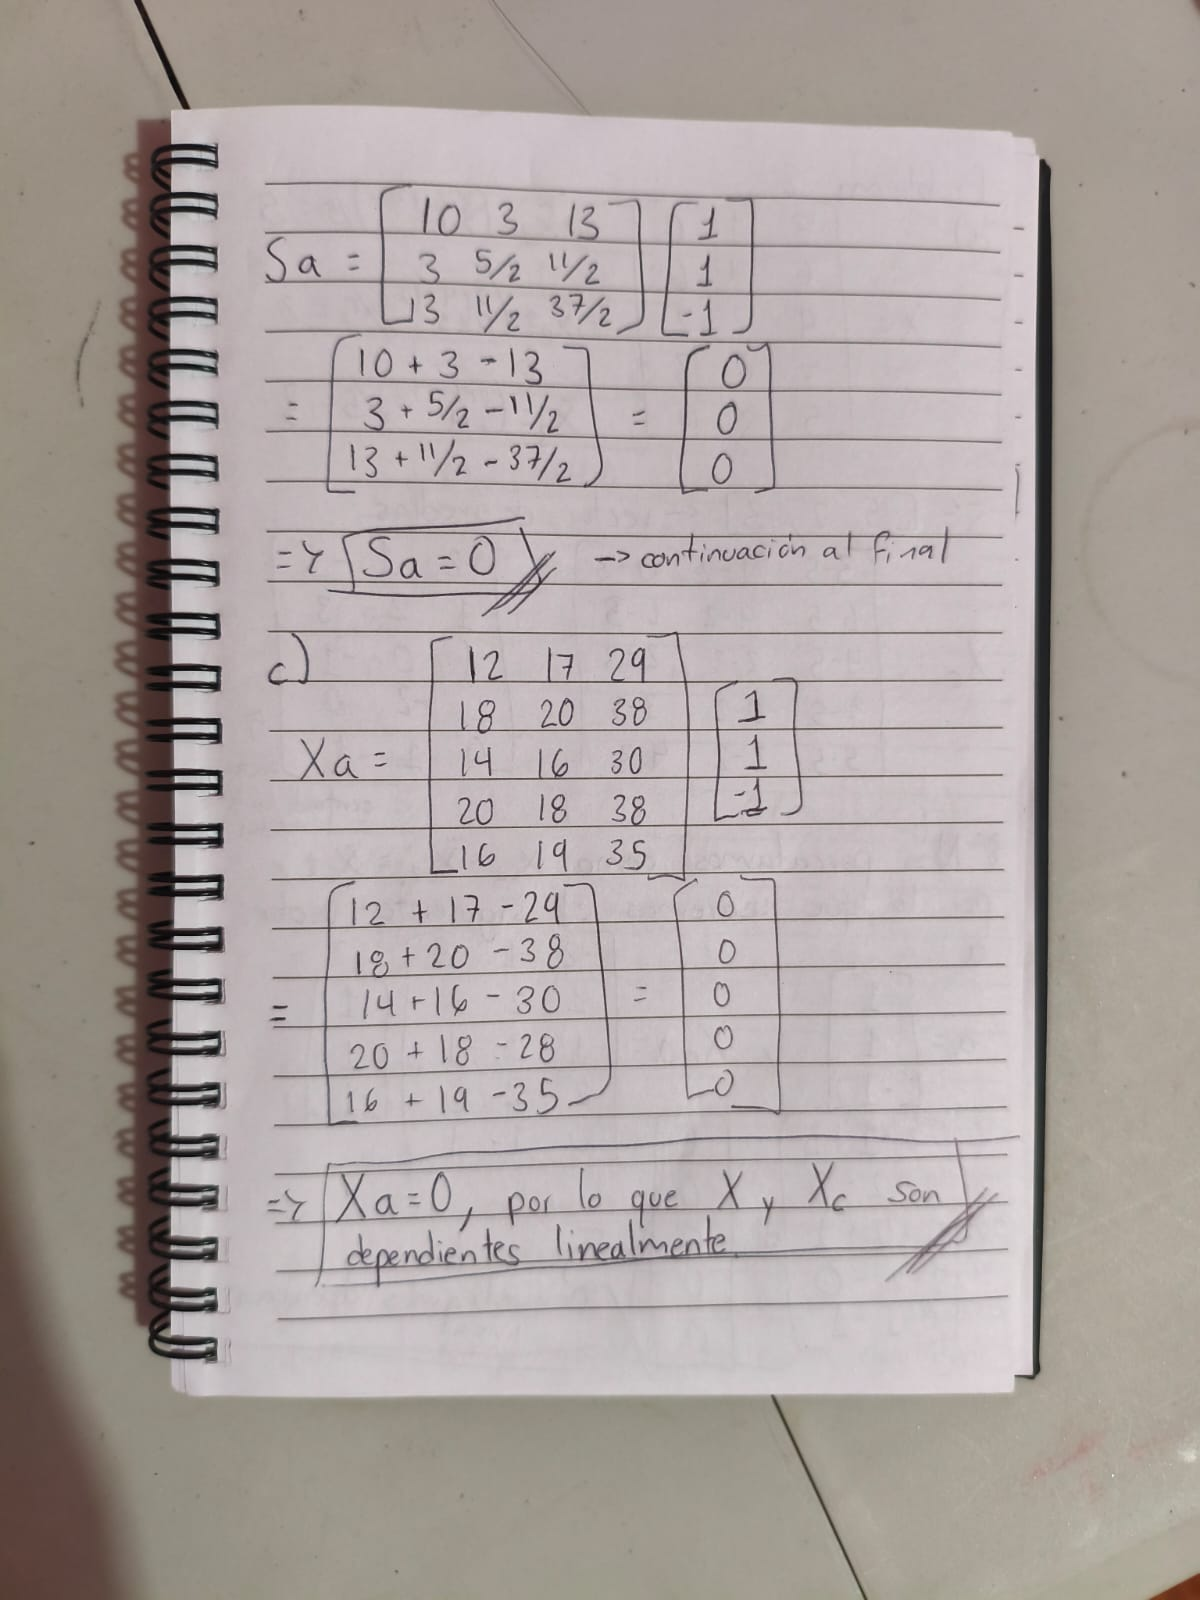 Sa = [10 3 13] [1]
[3 5/2 11/2] [1]
[13 11/2 37/2] [-1]
[10 + 3 - 13] [0]
= [3 + 5/2 - 11/2] = [0]
[13 + 11/2 - 37/2] [0]
=> Sa = 0 -> continuación al final
c) [12 17 29]
[18 20 38] [1]
Xa = [14 16 30] [1]
[20 18 38] [-1]
[16 19 35]
[12 + 17 - 29] [0]
[18 + 20 - 38] [0]
= [14 + 16 - 30] = [0]
[20 + 18 - 28] [0]
[16 + 19 - 35] [0]
=> Xa = 0, por lo que X y Xc son
dependientes linealmente.